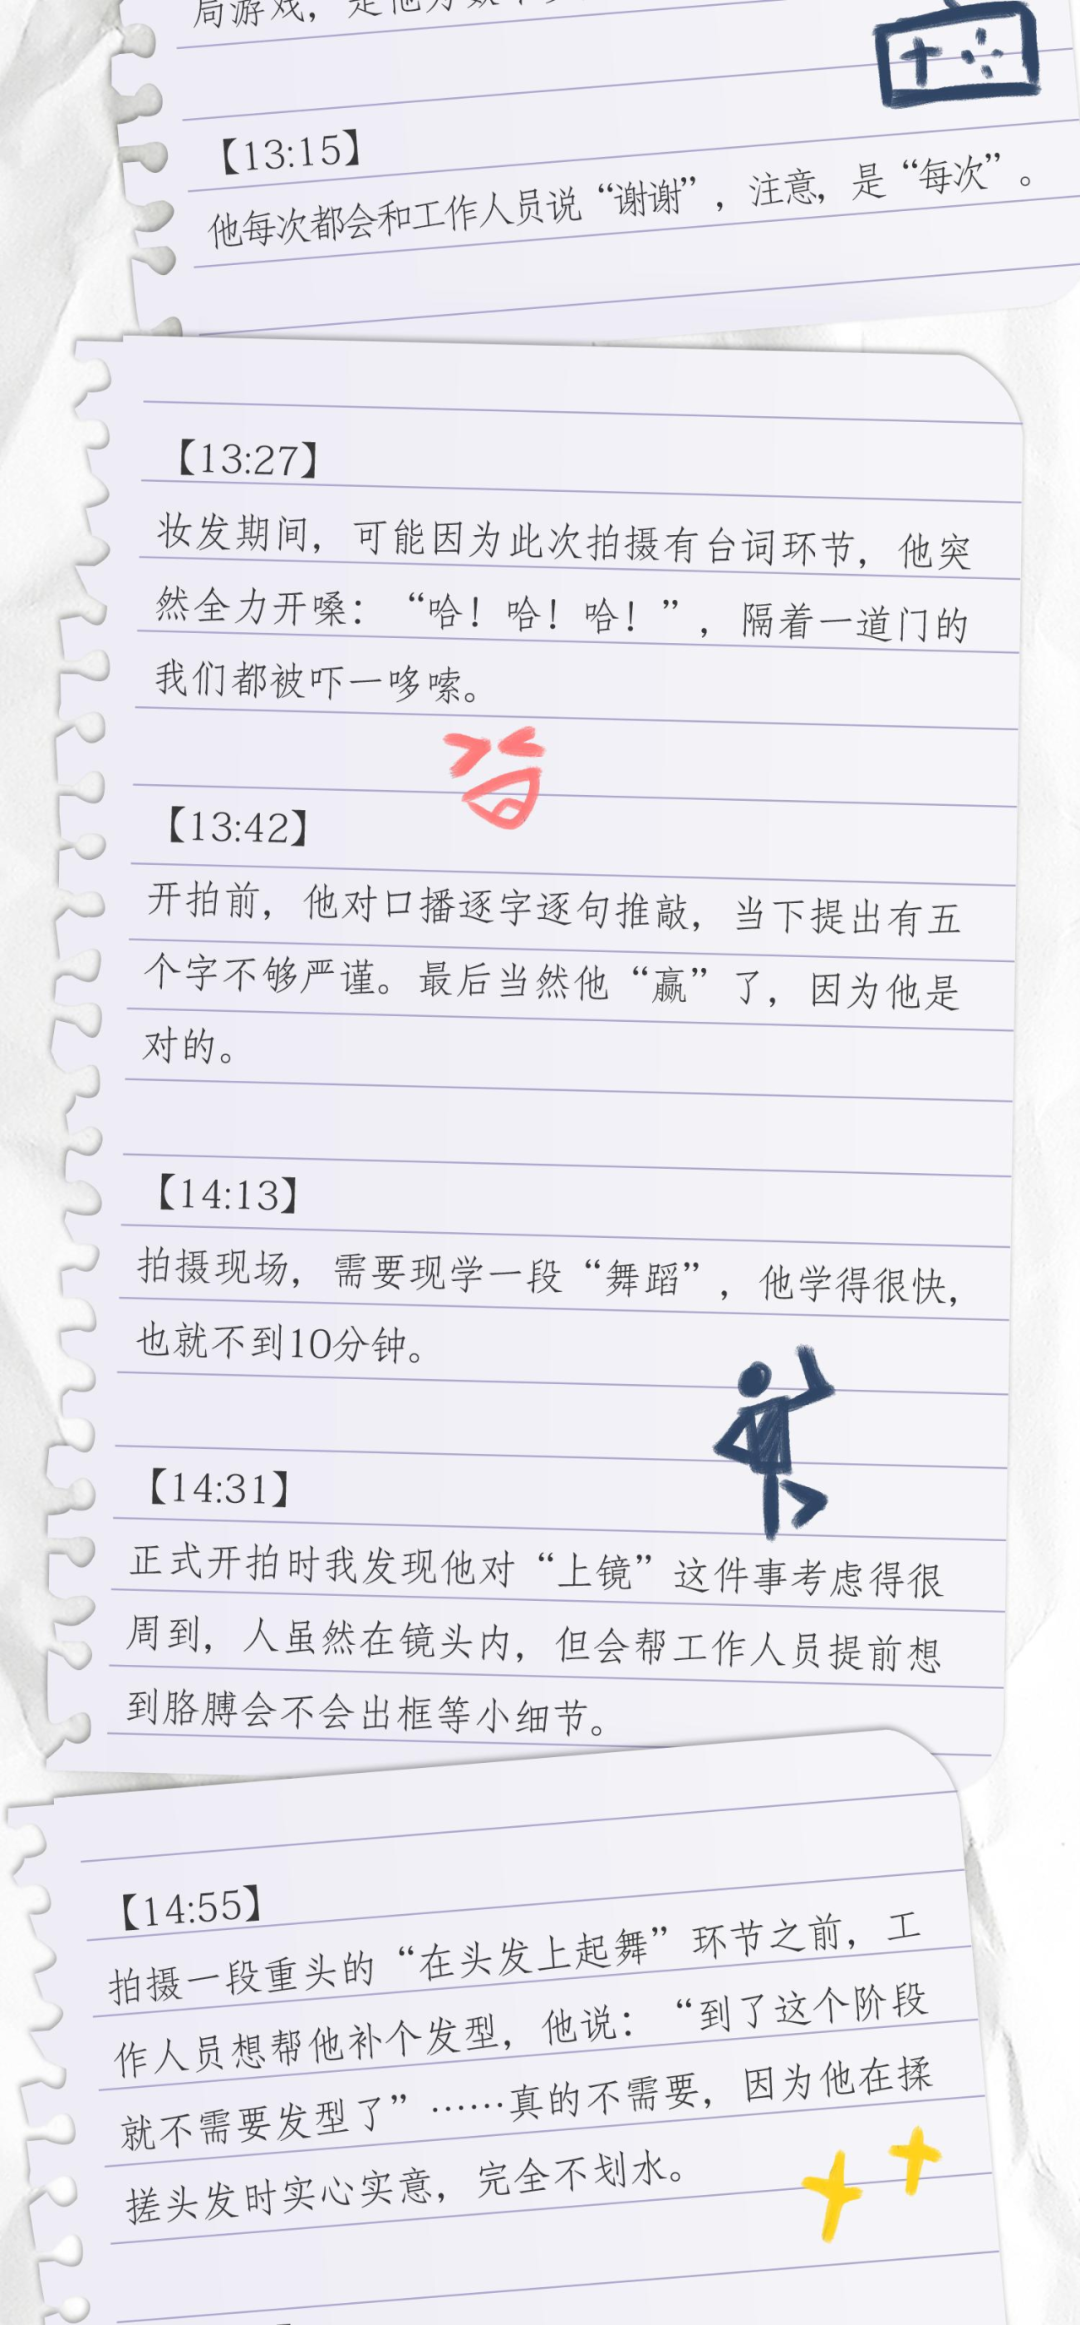 局游戏，是他
【13:15】
他每次都会和工作人员说“谢谢”，注意，是“每次”。
【13:27】
妆发期间，可能因为此次拍摄有台词环节，他突
然全力开嗓：“哈！哈！哈！”，隔着一道门的
我们都被吓一哆嗦。
【13:42】
开拍前，他对口播逐字逐句推敲，当下提出有五
个字不够严谨。最后当然他“赢”了，因为他是
对的。
【14:13】
拍摄现场，需要现学一段“舞蹈”，他学得很快，
也就不到10分钟。
【14:31】
正式开拍时我发现他对“上镜”这件事考虑得很
周到，人虽然在镜头内，但会帮工作人员提前想
到胳膊会不会出框等小细节。
【14:55】
拍摄一段重头的“在头发上起舞”环节之前，工
作人员想帮他补个发型，他说：“到了这个阶段
就不需要发型了”……真的不需要，因为他在揉
搓头发时实心实意，完全不划水。